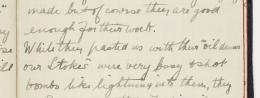 made but of course they are good
enough for their work.
While they pasted us with their "oil drums
our Stokes" were very busy & shot
bombs like lightning into them, they